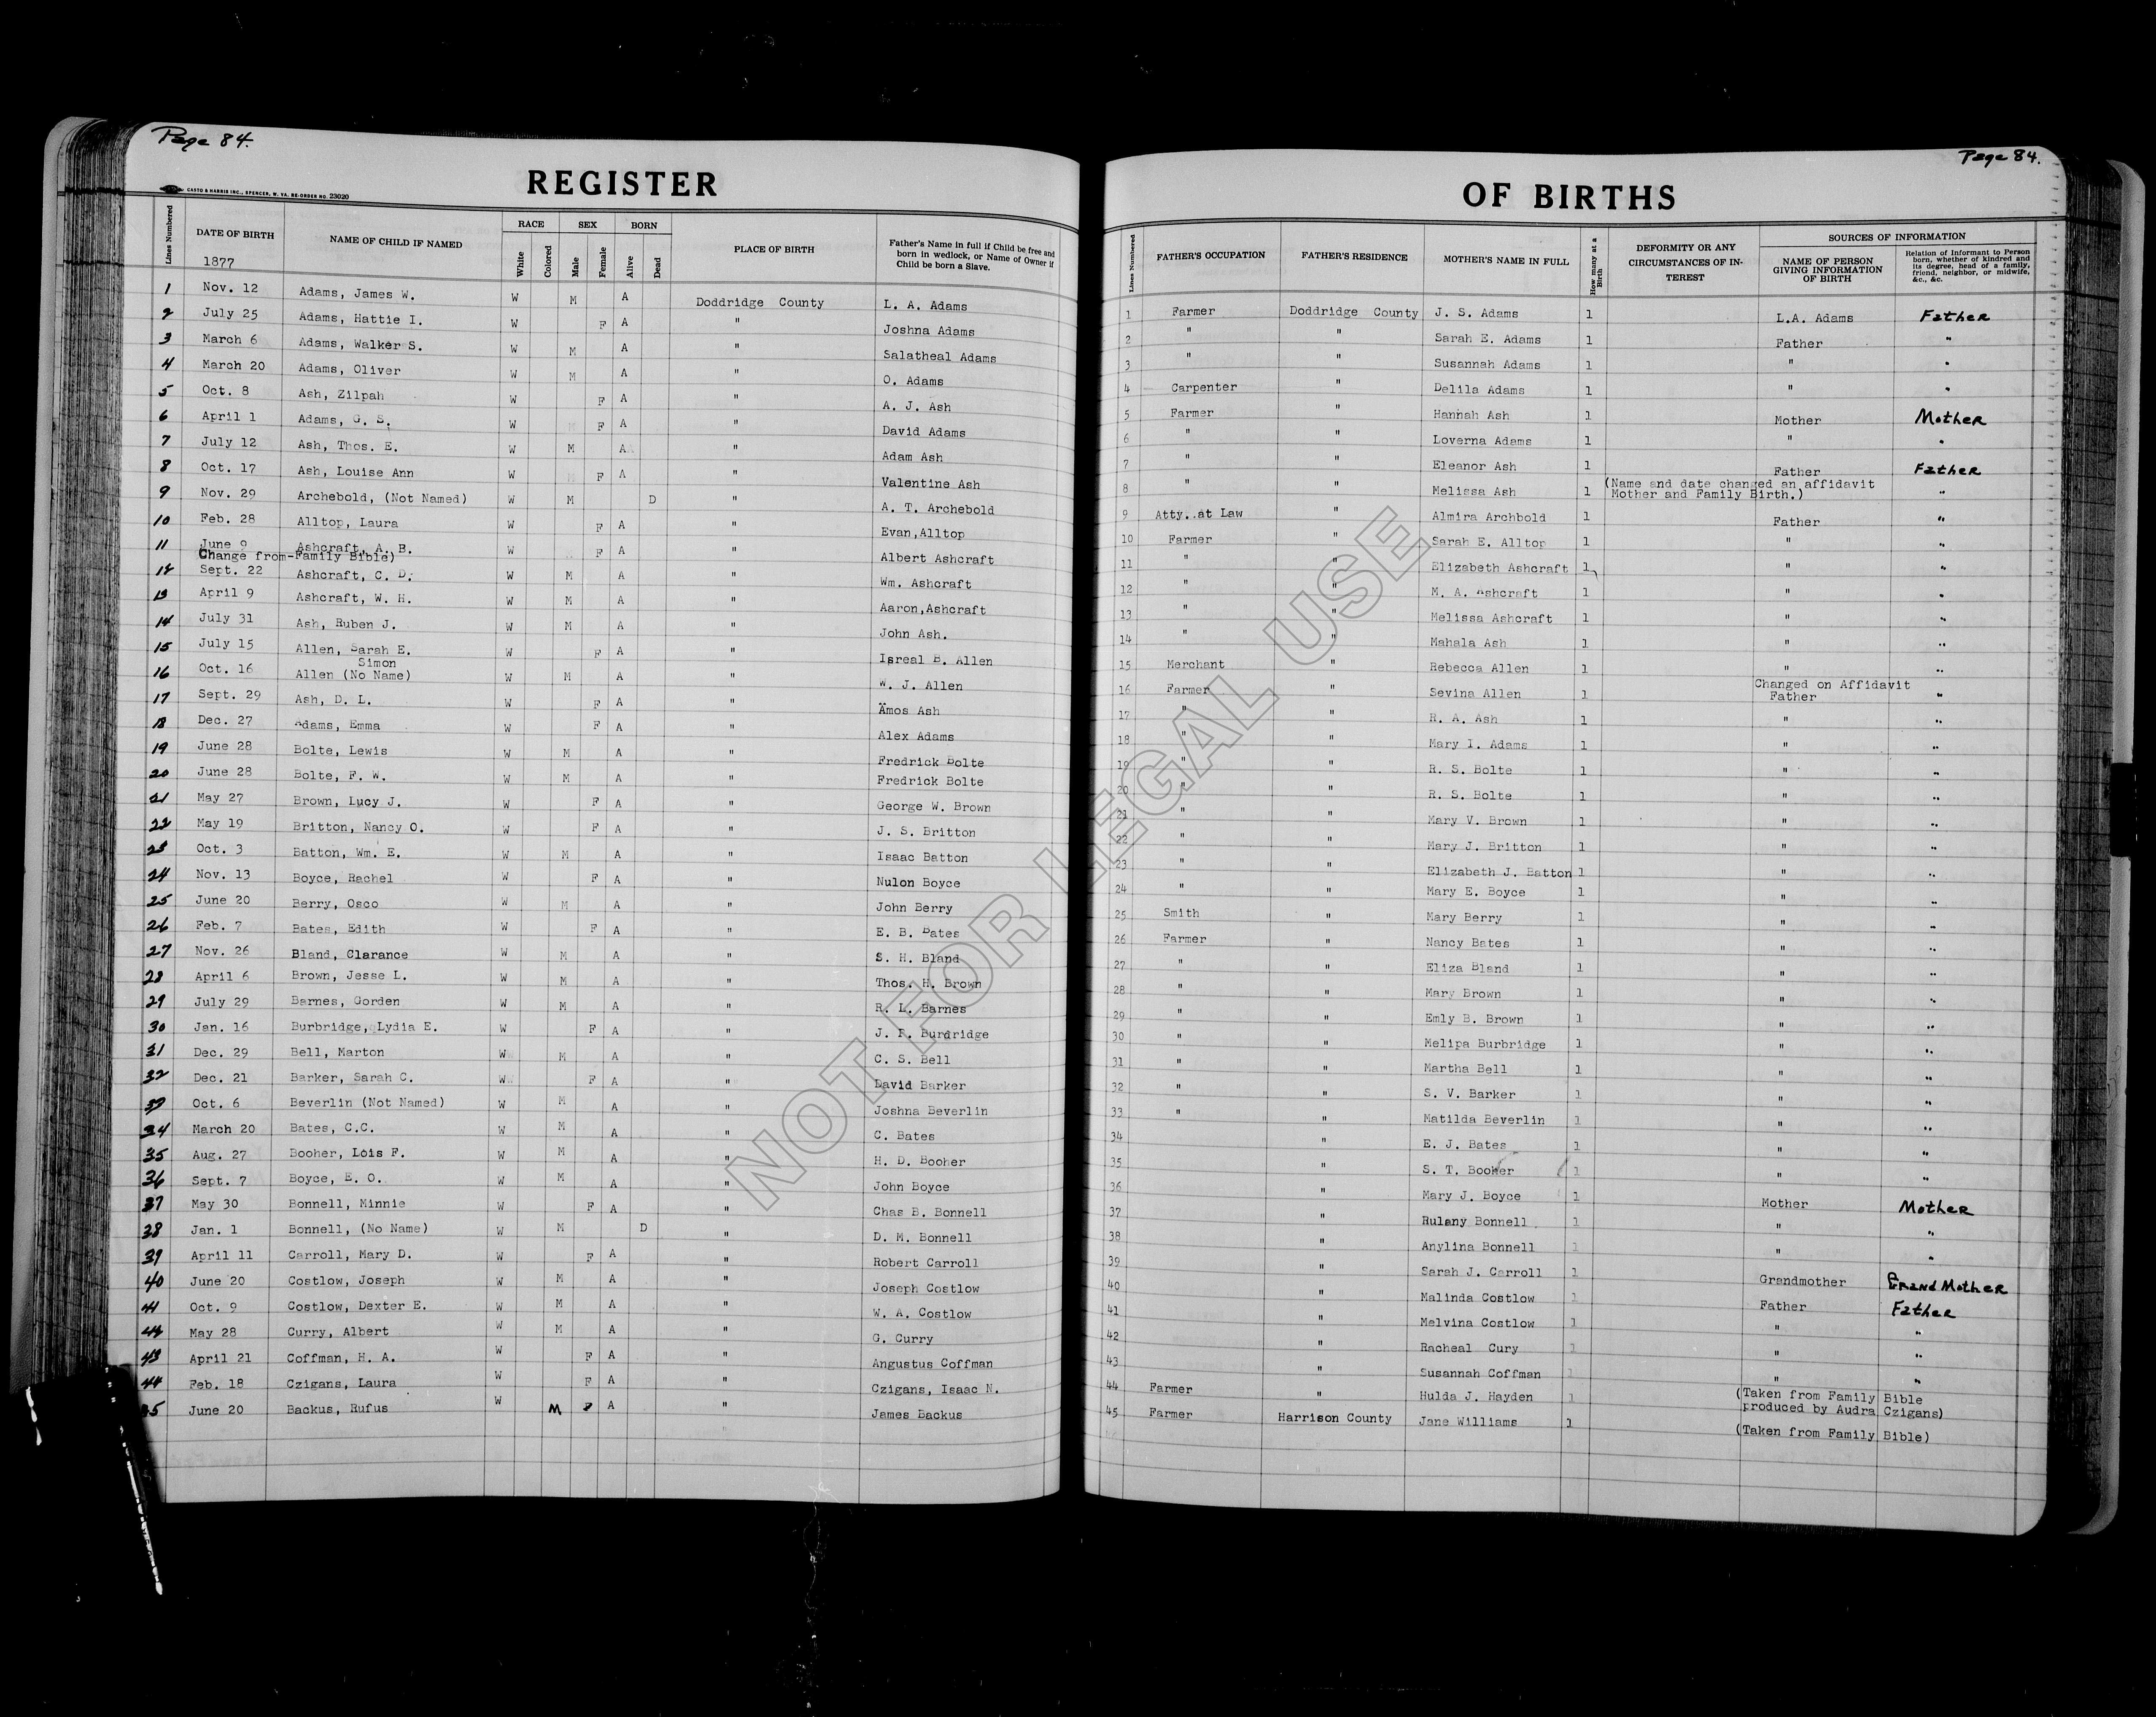 Page 84.
Page 84.
REGISTER
OF BIRTHS
CASTO & HARRIS INC., SPENCER, W. VA. RE-ORDER NO. 23020
Lines Numbered
DATE OF BIRTH
1877
NAME OF CHILD IF NAMED
RACE
White
Colored
SEX
Male
Female
BORN
Alive
Dead
PLACE OF BIRTH
Father's Name in full if Child be free and
born in wedlock, or Name of Owner if
Child be born a Slave.
1 Nov. 12 Adams, James W. W M A Doddridge County L. A. Adams
2 July 25 Adams, Hattie I. W F A " Joshna Adams
3 March 6 Adams, Walker S. W M A " Salatheal Adams
4 March 20 Adams, Oliver W M A " O. Adams
5 Oct. 8 Ash, Zilpah W F A " A. J. Ash
6 April 1 Adams, G. S. W F A " David Adams
7 July 12 Ash, Thos. E. W M A " Adam Ash
8 Oct. 17 Ash, Louise Ann W F A " Valentine Ash
9 Nov. 29 Archebold, (Not Named) W M D " A. T. Archebold
10 Feb. 28 Alltop, Laura W F A " Evan, Alltop
11 June 9 Ashcraft, A. B. W F A " Albert Ashcraft
Change from-Family Bible)
12 Sept. 22 Ashcraft, C. D. W M A " Wm. Ashcraft
13 April 9 Ashcraft, W. H. W M A " Aaron, Ashcraft
14 July 31 Ash, Ruben J. W M A " John Ash.
15 July 15 Allen, Sarah E. W F A " Isreal B. Allen
Simon
16 Oct. 16 Allen (No Name) W M A " W. J. Allen
17 Sept. 29 Ash, D. L. W F A " Amos Ash
18 Dec. 27 Adams, Emma W F A " Alex Adams
19 June 28 Bolte, Lewis W M A " Fredrick Bolte
20 June 28 Bolte, F. W. W M A " Fredrick Bolte
21 May 27 Brown, Lucy J. W F A " George W. Brown
22 May 19 Britton, Nancy O. W F A " J. S. Britton
23 Oct. 3 Batton, Wm. E. W M A " Isaac Batton
24 Nov. 13 Boyce, Rachel W F A " Nulon Boyce
25 June 20 Berry, Osco W M A " John Berry
26 Feb. 7 Bates, Edith W F A " E. B. Bates
27 Nov. 26 Bland, Clarance W M A " S. H. Bland
28 April 6 Brown, Jesse L. W M A " Thos. H. Brown
29 July 29 Barnes, Gorden W M A " R. L. Barnes
30 Jan. 16 Burbridge, Lydia E. W F A " J. R. Burdridge
31 Dec. 29 Bell, Marton W M A " C. S. Bell
32 Dec. 21 Barker, Sarah C. W F A " David Barker
33 Oct. 6 Beverlin (Not Named) W M A " Joshna Beverlin
34 March 20 Bates, C.C. W M A " C. Bates
35 Aug. 27 Booher, Lois F. W M A " H. D. Booher
36 Sept. 7 Boyce, E. O. W M A " John Boyce
37 May 30 Bonnell, Minnie W F A " Chas B. Bonnell
38 Jan. 1 Bonnell, (No Name) W M D " D. M. Bonnell
39 April 11 Carroll, Mary D. W F A " Robert Carroll
40 June 20 Costlow, Joseph W M A " Joseph Costlow
41 Oct. 9 Costlow, Dexter E. W M A " W. A. Costlow
44 May 28 Curry, Albert W M A " G. Curry
43 April 21 Coffman, H. A. W F A " Angustus Coffman
44 Feb. 18 Czigans, Laura W F A " Czigans, Isaac N.
35 June 20 Backus, Rufus W M F A " James Backus
Lines Numbered
FATHER'S OCCUPATION
FATHER'S RESIDENCE
MOTHER'S NAME IN FULL
How many at a Birth
DEFORMITY OR ANY
CIRCUMSTANCES OF IN-
TEREST
SOURCES OF INFORMATION
NAME OF PERSON
GIVING INFORMATION
OF BIRTH
Relation of Informant to Person
born, whether of kindred and
its degree, head of a family,
friend, neighbor, or midwife,
&c., &c.
1 Farmer Doddridge County J. S. Adams 1 L.A. Adams Father
2 " " Sarah E. Adams 1 Father "
3 " " Susannah Adams 1 " "
4 Carpenter " Delila Adams 1 " "
5 Farmer " Hannah Ash 1 Mother Mother
6 " " Loverna Adams 1 " "
7 " " Eleanor Ash 1 Father Father
8 " " Melissa Ash 1 (Name and date changed an affidavit "
Mother and Family Birth.)
9 Atty. at Law " Almira Archbold 1 Father "
10 Farmer " Sarah E. Alltop 1 " "
11 " " Elizabeth Ashcraft 1 " "
12 " " M. A. Ashcraft 1 " "
13 " " Melissa Ashcraft 1 " "
14 " " Mahala Ash 1 " "
15 Merchant " Rebecca Allen 1 " "
Changed on Affidavit
16 Farmer " Sevina Allen 1 Father "
17 " " R. A. Ash 1 " "
18 " " Mary I. Adams 1 " "
19 " " R. S. Bolte 1 " "
20 " " R. S. Bolte 1 " "
21 " " Mary V. Brown 1 " "
22 " " Mary J. Britton 1 " "
23 " " Elizabeth J. Batton 1 " "
24 " " Mary E. Boyce 1 " "
25 Smith " Mary Berry 1 " "
26 Farmer " Nancy Bates 1 " "
27 " " Eliza Bland 1 " "
28 " " Mary Brown 1 " "
29 " " Emly B. Brown 1 " "
30 " " Melipa Burbridge 1 " "
31 " " Martha Bell 1 " "
32 " " S. V. Barker 1 " "
33 " " Matilda Beverlin 1 " "
34 " E. J. Bates 1 " "
35 " S. T. Booher 1 " "
36 " Mary J. Boyce 1 Mother Mother
37 " Rulany Bonnell 1 " "
38 " Anylina Bonnell 1 " "
39 " Sarah J. Carroll 1 Grandmother Grand Mother
40 " Malinda Costlow 1 Father Father
41 " Melvina Costlow 1 " "
42 " Racheal Cury 1 " "
43 " Susannah Coffman 1 " "
44 Farmer " Hulda J. Hayden 1 (Taken from Family Bible
produced by Audra Czigans)
45 Farmer Harrison County Jane Williams 1 (Taken from Family Bible)
NOT FOR LEGAL USE